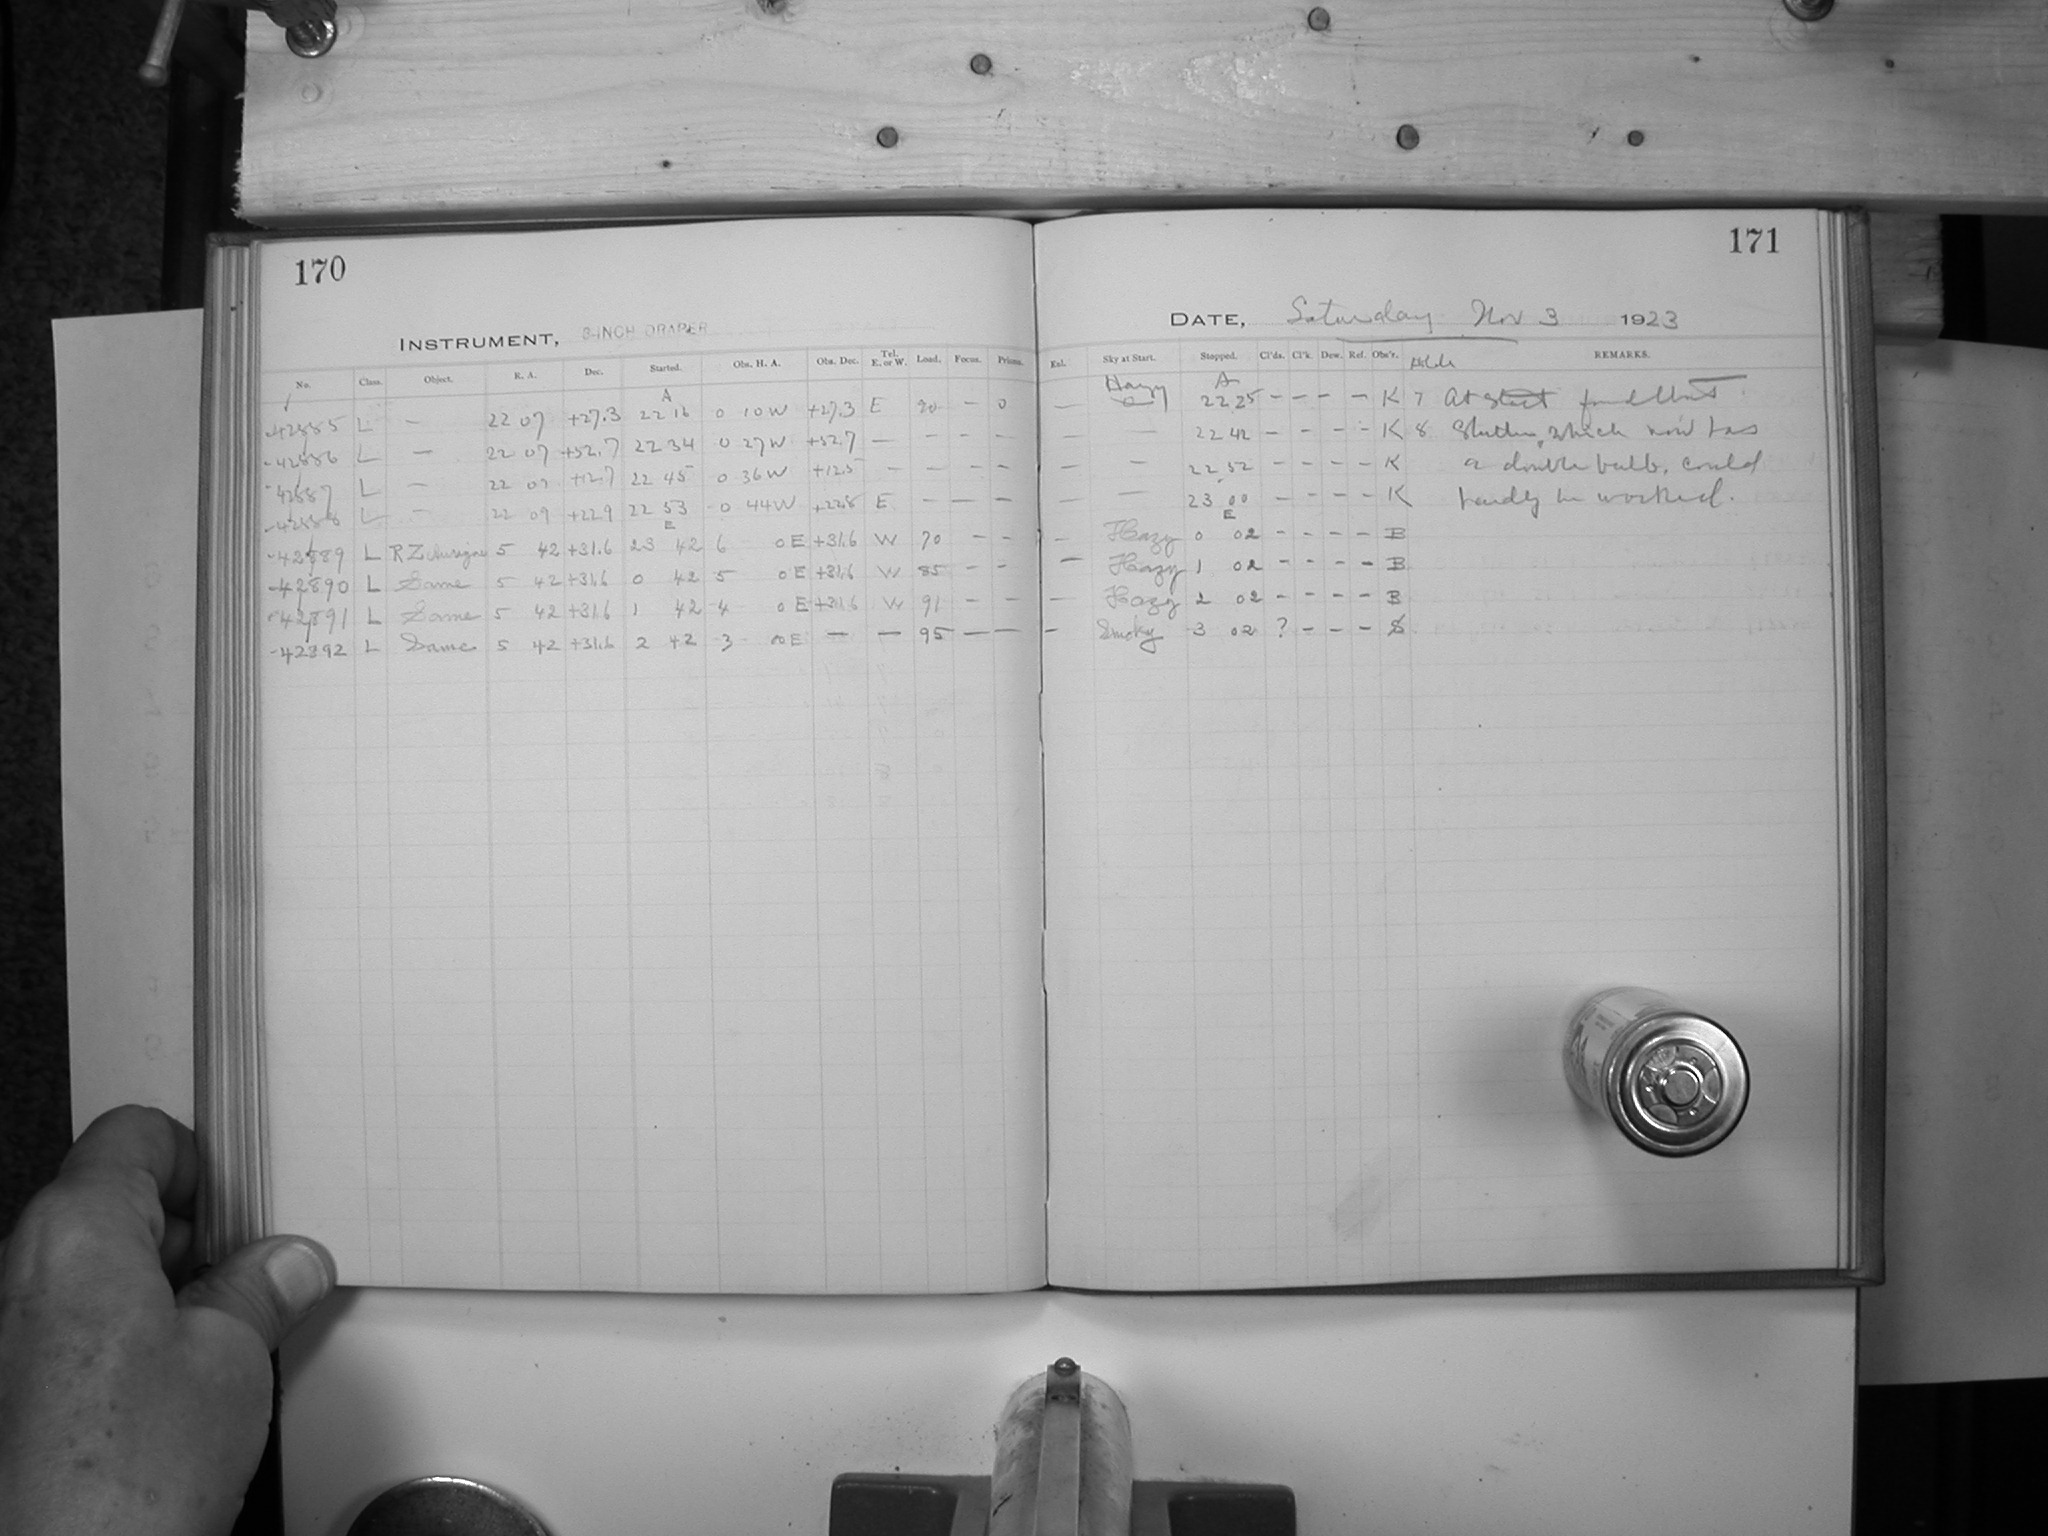 170
171
INSTRUMENT, 8-INCH DRAPER
DATE, Saturday Nov 3 1923
No. Class. Object. R. A. Dec. Started. Obs. H. A. Obs. Dec. Tel. E. or W. Load. Focus. Prisms. Sky at Start. Stopped. Cl'ds. Cl'k. Dew. Ref. Obs'r. REMARKS.
A Hazy A
42885 L — 22 07 +27.3 22 16 0 10 W +27.3 E 90 — 0 — 22 25 — — — — K 7 At start found that
42886 L — 22 07 +52.7 22 34 0 27 W +52.7 — — — — — — 22 42 — — — — K 8 Shutter, which now has
42887 L — 22 07 +12.7 22 45 0 36 W +12.5 — — — — — — 22 52 — — — — K a double bulb, could
42888 L — 22 09 +22.9 22 53 0 44 W +22.8 E — — — — — 23 00 — — — — K hardly be worked.
E E
42889 L RZ Aurigae 5 42 +31.6 23 42 6 0 E +31.6 W 70 — — — Hazy 0 02 — — — — B
42890 L Same 5 42 +31.6 0 42 5 0 E +31.6 W 85 — — — Hazy 1 02 — — — — B
42891 L Same 5 42 +31.6 1 42 4 0 E +31.6 W 91 — — — Hazy 2 02 — — — — B
42892 L Same 5 42 +31.6 2 42 3 00 E — — 95 — — — Smoky 3 02 ? — — — S